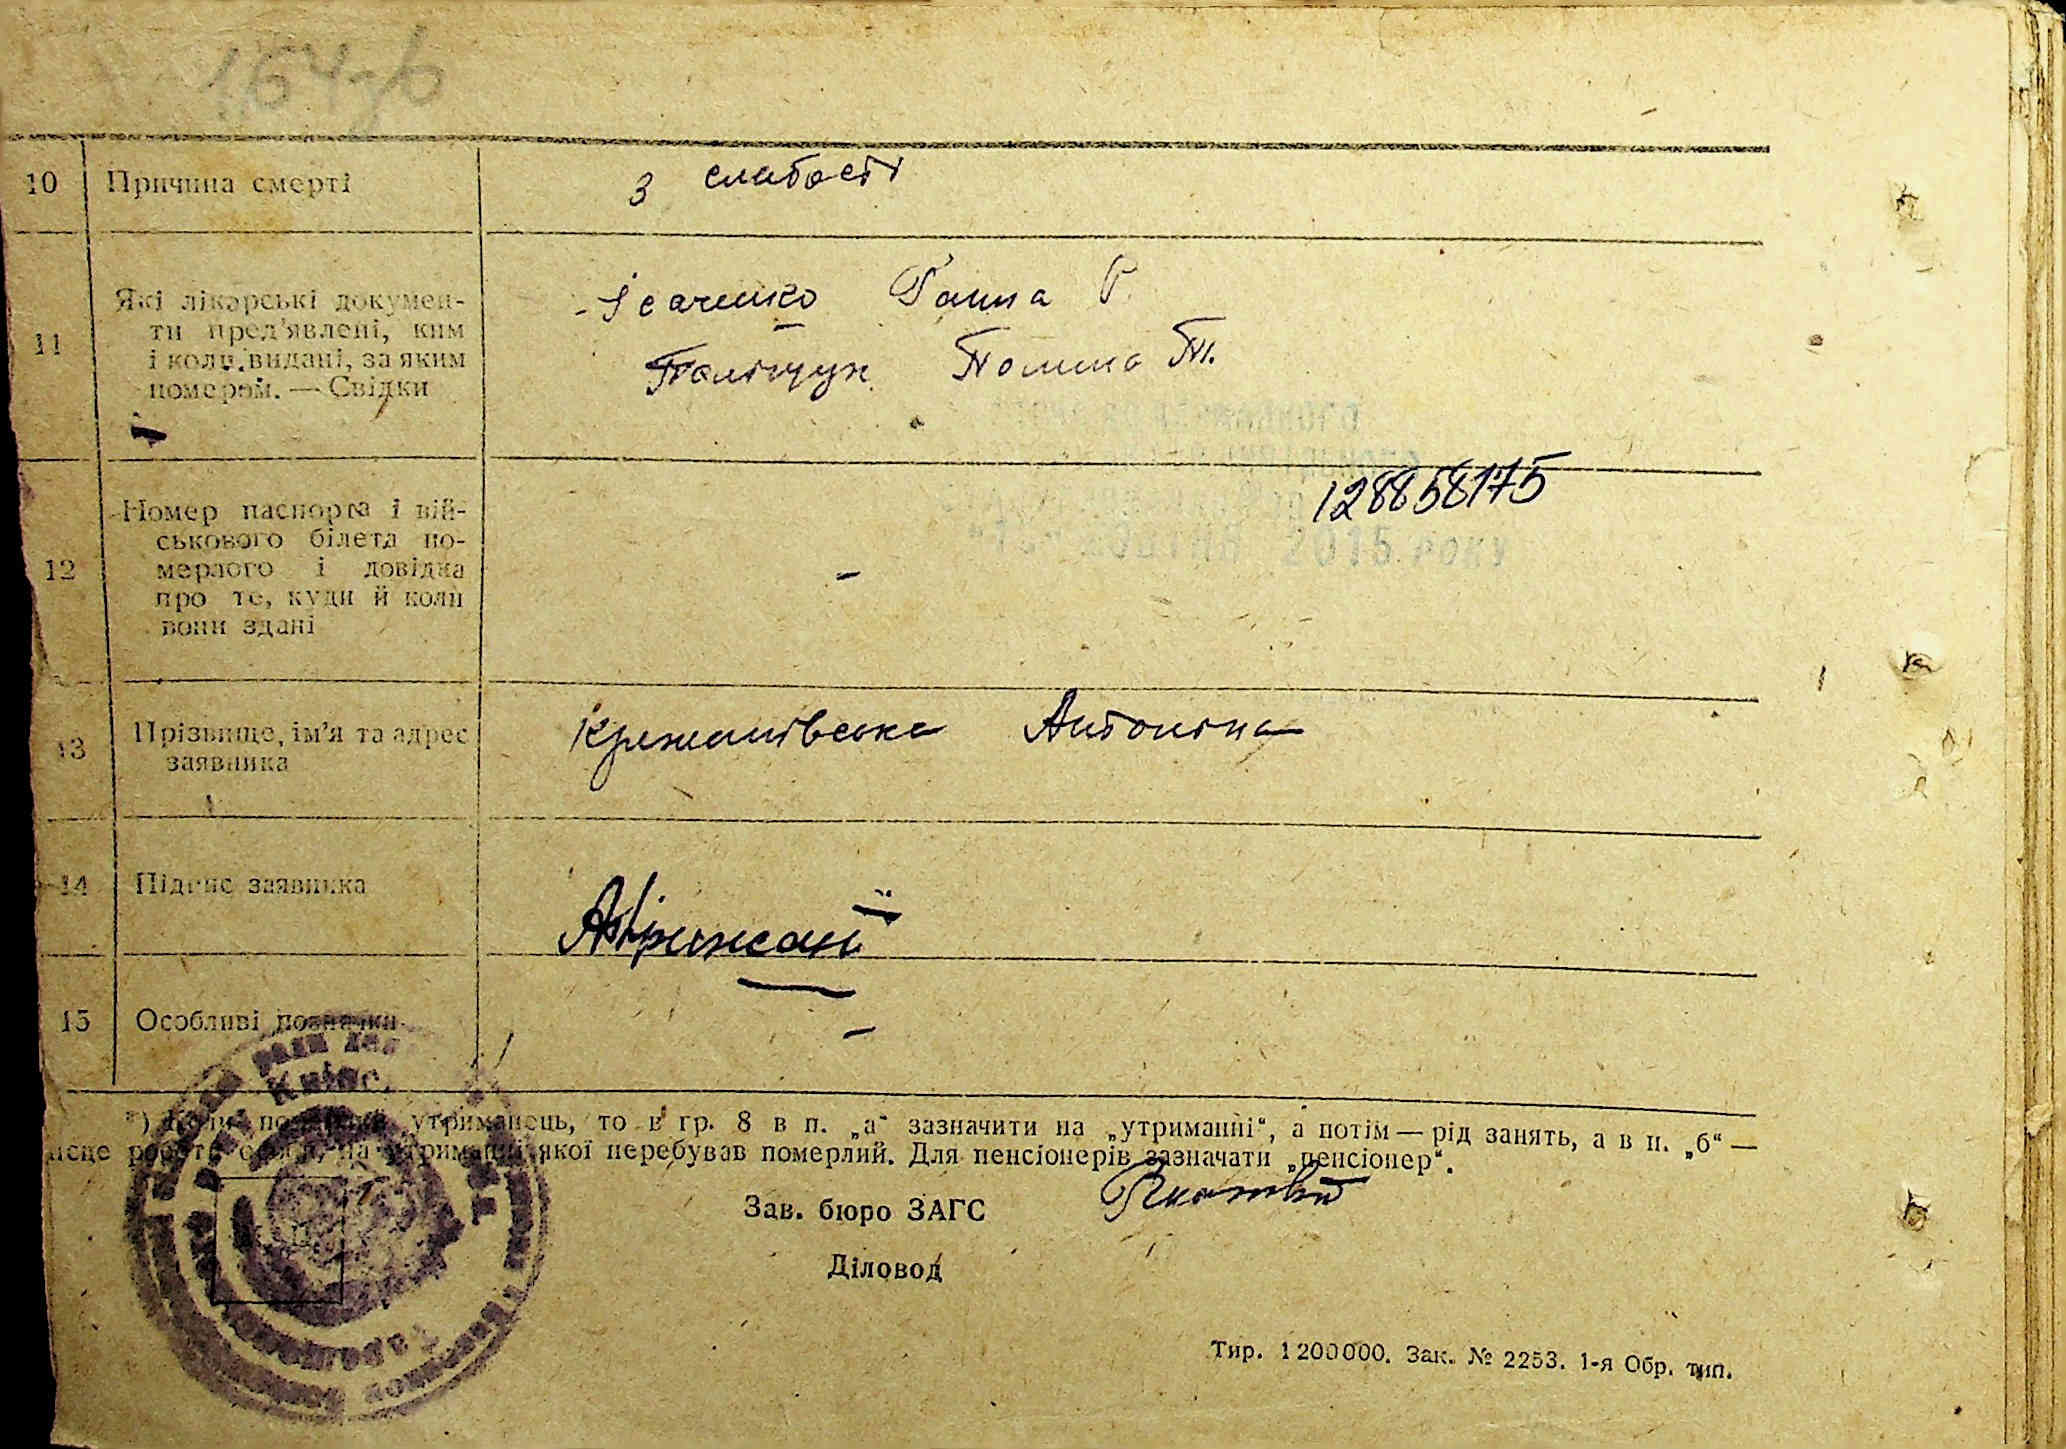 164-б
10 Причина смерті
з слабості
11 Які лікарські докумен-
ти пред'явлені, ким
і коли видані, за яким
номером. — Свідки
Ісаченко Ганна Г.
Поліщук Поліна Т.
12 Номер паспорта і вій-
ськового білета по-
мерлого і довідка
про те, куди й коли
вони здані
128858175
2015 року
–
13 Прізвище, ім'я та адрес
заявника
Крежанівська Антоніна
14 Підпис заявника
15 Особливі позначки
–
утриманець, то в гр. 8 в п. „а" зазначити на „утриманні", а потім — рід занять, а в п. „б" —
якої перебував померлий. Для пенсіонерів зазначати „пенсіонер".
Зав. бюро ЗАГС
Діловод
Тир. 1200000. Зак. № 2253. 1-я Обр. тип.